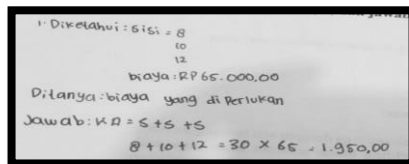 1. Diketahui : sisi = 8
10
12
biaya : RP 65.000,00
Ditanya : biaya yang diperlukan
Jawab : KΔ = S + S + S
8 + 10 + 12 = 30 × 65 = 1.950,00